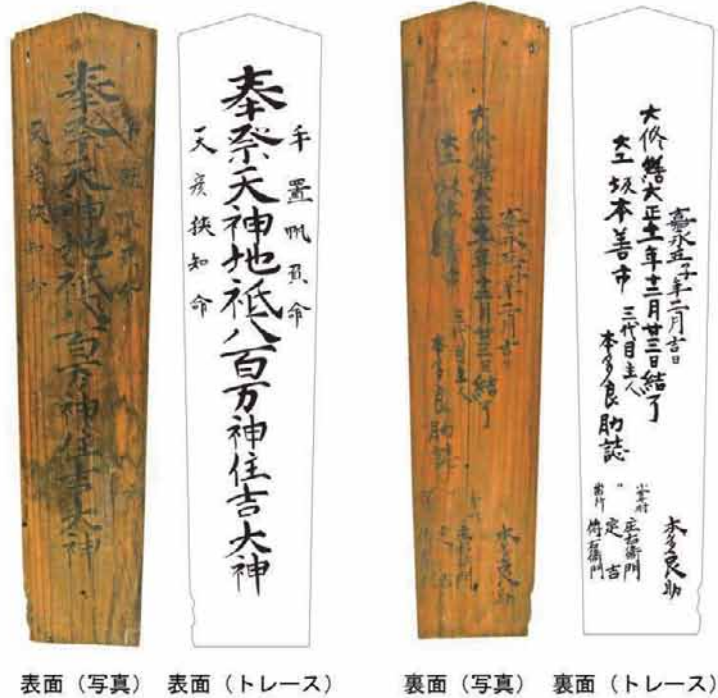 手置帆負命
奉祭天神地祇八百万神住吉大神
天彦狭知命
嘉永五子年二月吉日
大修繕大正十一年十二月廿三日結了
大工坂本善市
三代目主人
本多良助誌
本多良助
小宮村
庄右衛門
〃
定吉
当所
表面（写真）
表面（トレース）
裏面（写真）
裏面（トレース）